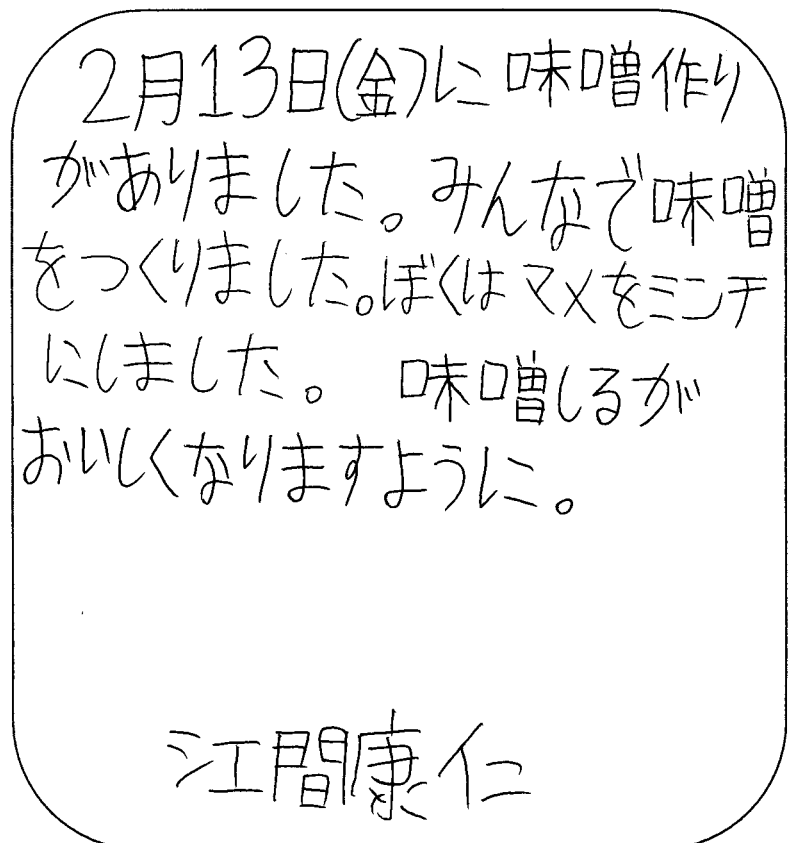 2月13日(金)に味噌作り
がありました。みんなで味噌
をつくりました。ぼくはマメをミンチ
にしました。 味噌しるが
おいしくなりますように。
江間康仁